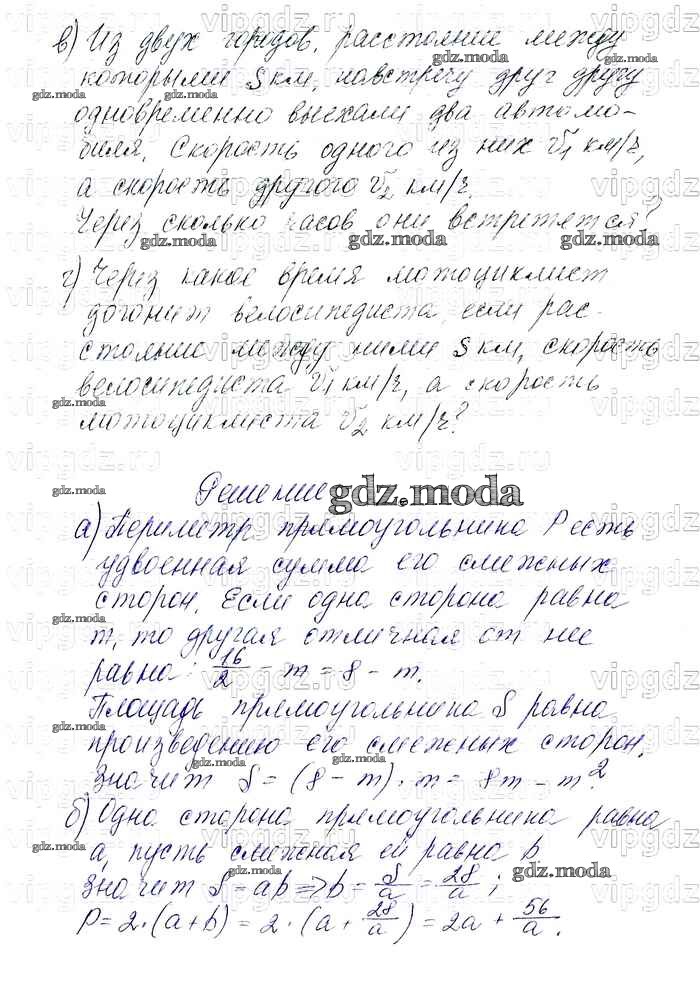 в) Из двух городов, расстояние между
которыми S км, навстречу друг другу
одновременно выехали два автомо-
биля. Скорость одного из них v₁ км/ч,
а скорость другого v₂ км/ч.
Через сколько часов они встретятся?
г) Через какое время мотоциклист
догонит велосипедиста, если рас-
стояние между ними S км, скорость
велосипедиста v₁ км/ч, а скорость
мотоциклиста v₂ км/ч?
Решение
gdz.moda
а) Периметр прямоугольника P есть
удвоенная сумма его смежных
сторон. Если одна сторона равна
m, то другая отличная от нее
равна: 16/2 - m = 8 - m.
Площадь прямоугольника S равна
произведению его смежных сторон.
Значит S = (8 - m) · m = 8m - m².
б) Одна сторона прямоугольника равна
a, пусть смежная ей равна b
Значит S = ab => b = S/a = 28/a ;
P = 2·(a + b) = 2·(a + 28/a) = 2a + 56/a.